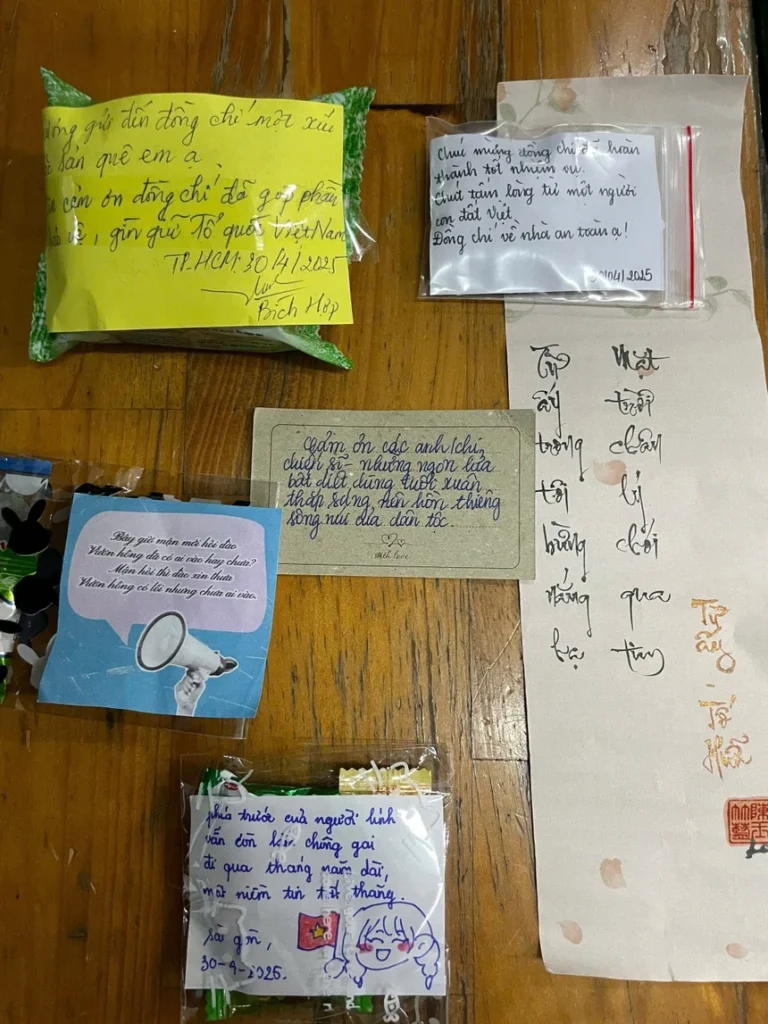 gửi đến đồng chí một xíu
sản quê em ạ.
cảm ơn đồng chí đã góp phần
vệ, gìn giữ Tổ quốc Việt Nam
TP.HCM 30/4/2025
Bích Hợp
Chúc mừng đồng chí đã hoàn
thành tốt nhiệm vụ.
Chút tấm lòng từ một người
con đất Việt.
Đồng chí về nhà an toàn ạ!
30/04/2025
Cảm ơn các anh/chị,
chiến sĩ - những ngọn lửa
bất diệt dùng tuổi xuân
thắp sáng nên hồn thiêng
sông núi của dân tộc.
with love
Bây giờ mận mới hỏi đào
Vườn hồng đã có ai vào hay chưa?
Mận hỏi thì đào xin thưa
Vườn hồng có lối nhưng chưa ai vào.
phía trước của người lính
vẫn còn lắm chông gai
đi qua tháng năm dài,
một niềm tin tất thắng.
Sài gòn,
30-4-2025.
Từ ấy trong tôi bừng nắng hạ
Mặt trời chân lý chói qua tim
Từ ấy
Tố Hữu